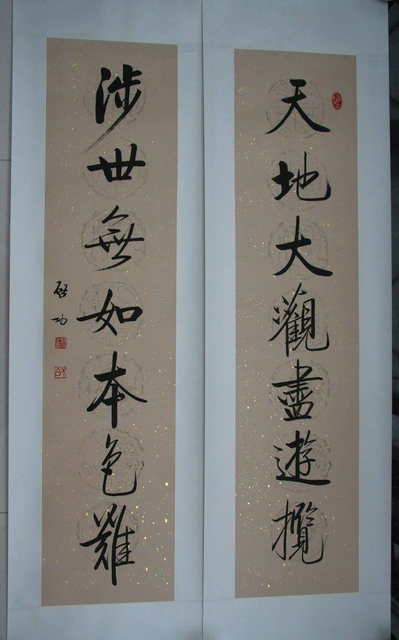 天地大觀盡遊攬
涉世無如本色難
啓功